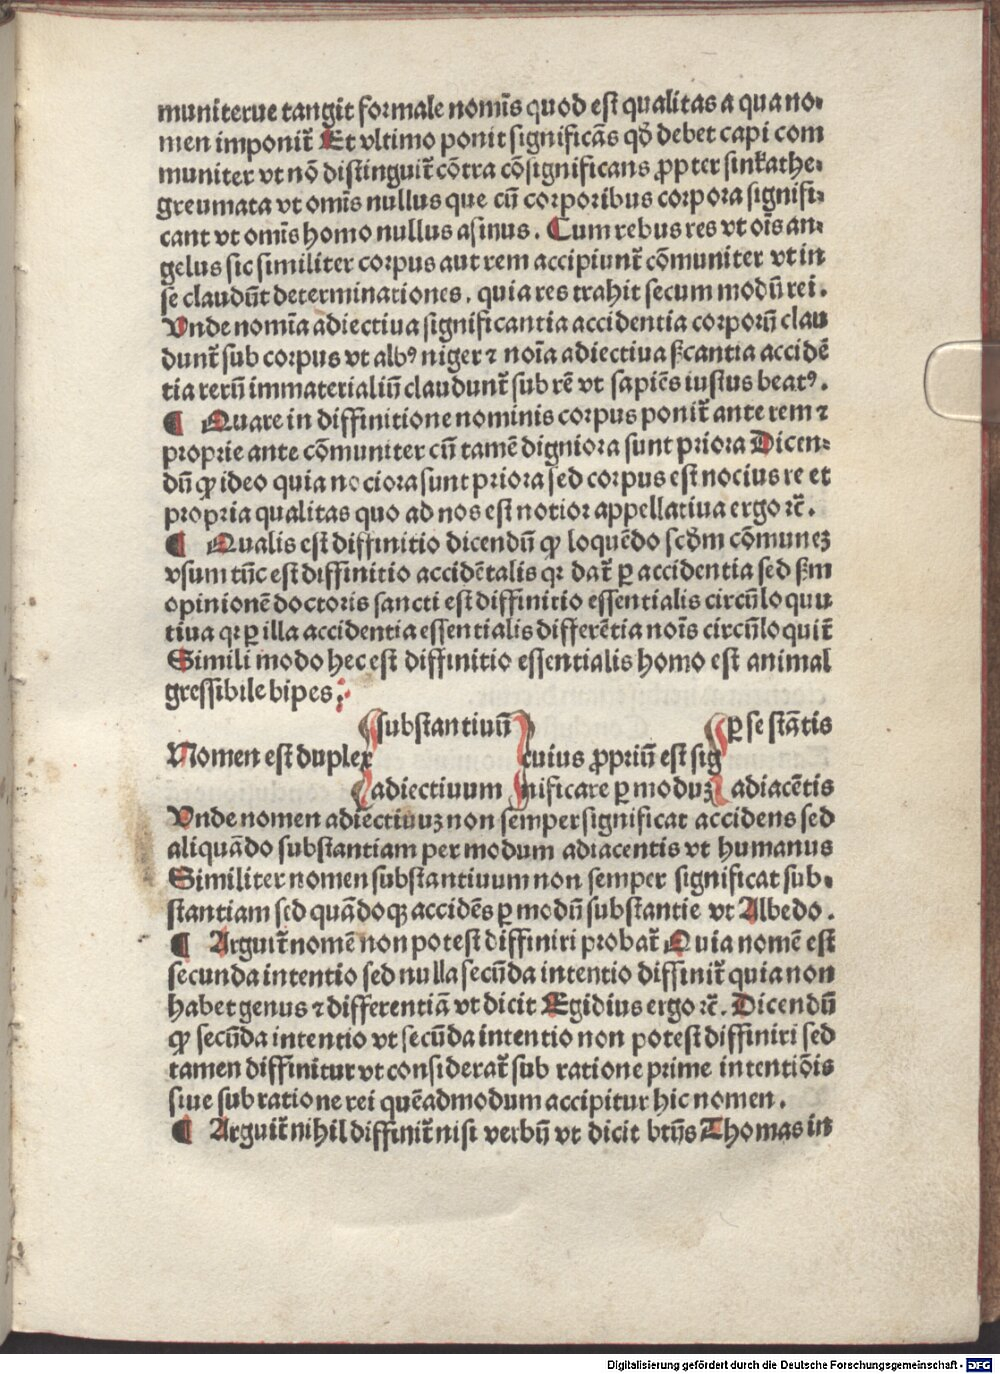 muniterue tangit formale nomīs quod est qualitas a qua no⸗
men imponit᷑ Et vltimo ponit significās qd̄ debet capi com
muniter vt nō distinguit᷑ cōtra cōsignificans ꝓpter sinkathe⸗
greumata vt omīs nullus que cū corporibus corpora signifi⸗
cant vt omīs homo nullus asinus. Cum rebus res vt oīs an⸗
gelus sic similiter corpus aut rem accipiunt᷑ cōmuniter vt in
se claudūt determinationes. quia res trahit secum modū rei.
Vnde nomīa adiectiua significantia accidentia corporū clau
dunt᷑ sub corpus vt albꝰ niger ⁊ noīa adiectiua sc̄antia accidē
tia rerū immaterialiū claudunt᷑ sub rē vt sapiēs iustus beatꝰ.
¶ Quare in diffinitione nominis corpus ponit᷑ ante rem ⁊
proprie ante cōmuniter cū tamē digniora sunt priora Dicen⸗
dū ꝙ ideo quia nociora sunt priora sed corpus est nocius re et
propria qualitas quo ad nos est notior appellatiua ergo ꝛc̄.
¶ Qualis est diffinitio dicendū ꝙ loquēdo scd̄m cōmunez
vsum tūc est diffinitio accidētalis qꝛ dat᷑ ꝑ accidentia sed sm̄
opinionē doctoris sancti est diffinitio essentialis circūloquu
tiua qꝛ ꝑ illa accidentia essentialis differētia noīs circūloquit᷑
Simili modo hec est diffinitio essentialis homo est animal
gressibile bipes:
substantiuū ꝑ se stātis
Nomen est duplex cuius ꝓpriū est sig
adiectiuum nificare ꝑ moduꝫ adiacētis
Vnde nomen adiectiuuꝫ non semper significat accidens sed
aliquādo substantiam per modum adiacentis vt humanus
Similiter nomen substantiuum non semper significat sub⸗
stantiam sed quādoqꝫ accidēs ꝑ modū substantie vt Albedo.
¶ Arguit᷑ nomē non potest diffiniri probat᷑ Quia nomē est
secunda intentio sed nulla secūda intentio diffinit᷑ quia non
habet genus ⁊ differentiā vt dicit Egidius ergo ꝛc̄. Dicendū
ꝙ secūda intentio vt secūda intentio non potest diffiniri sed
tamen diffinitur vt considerat᷑ sub ratione prime intentiōis
siue sub ratione rei quēadmodum accipitur hic nomen.
¶ Arguit᷑ nihil diffinit᷑ nisi verbū vt dicit btūs Thomas in
Digitalisierung gefördert durch die Deutsche Forschungsgemeinschaft - DFG